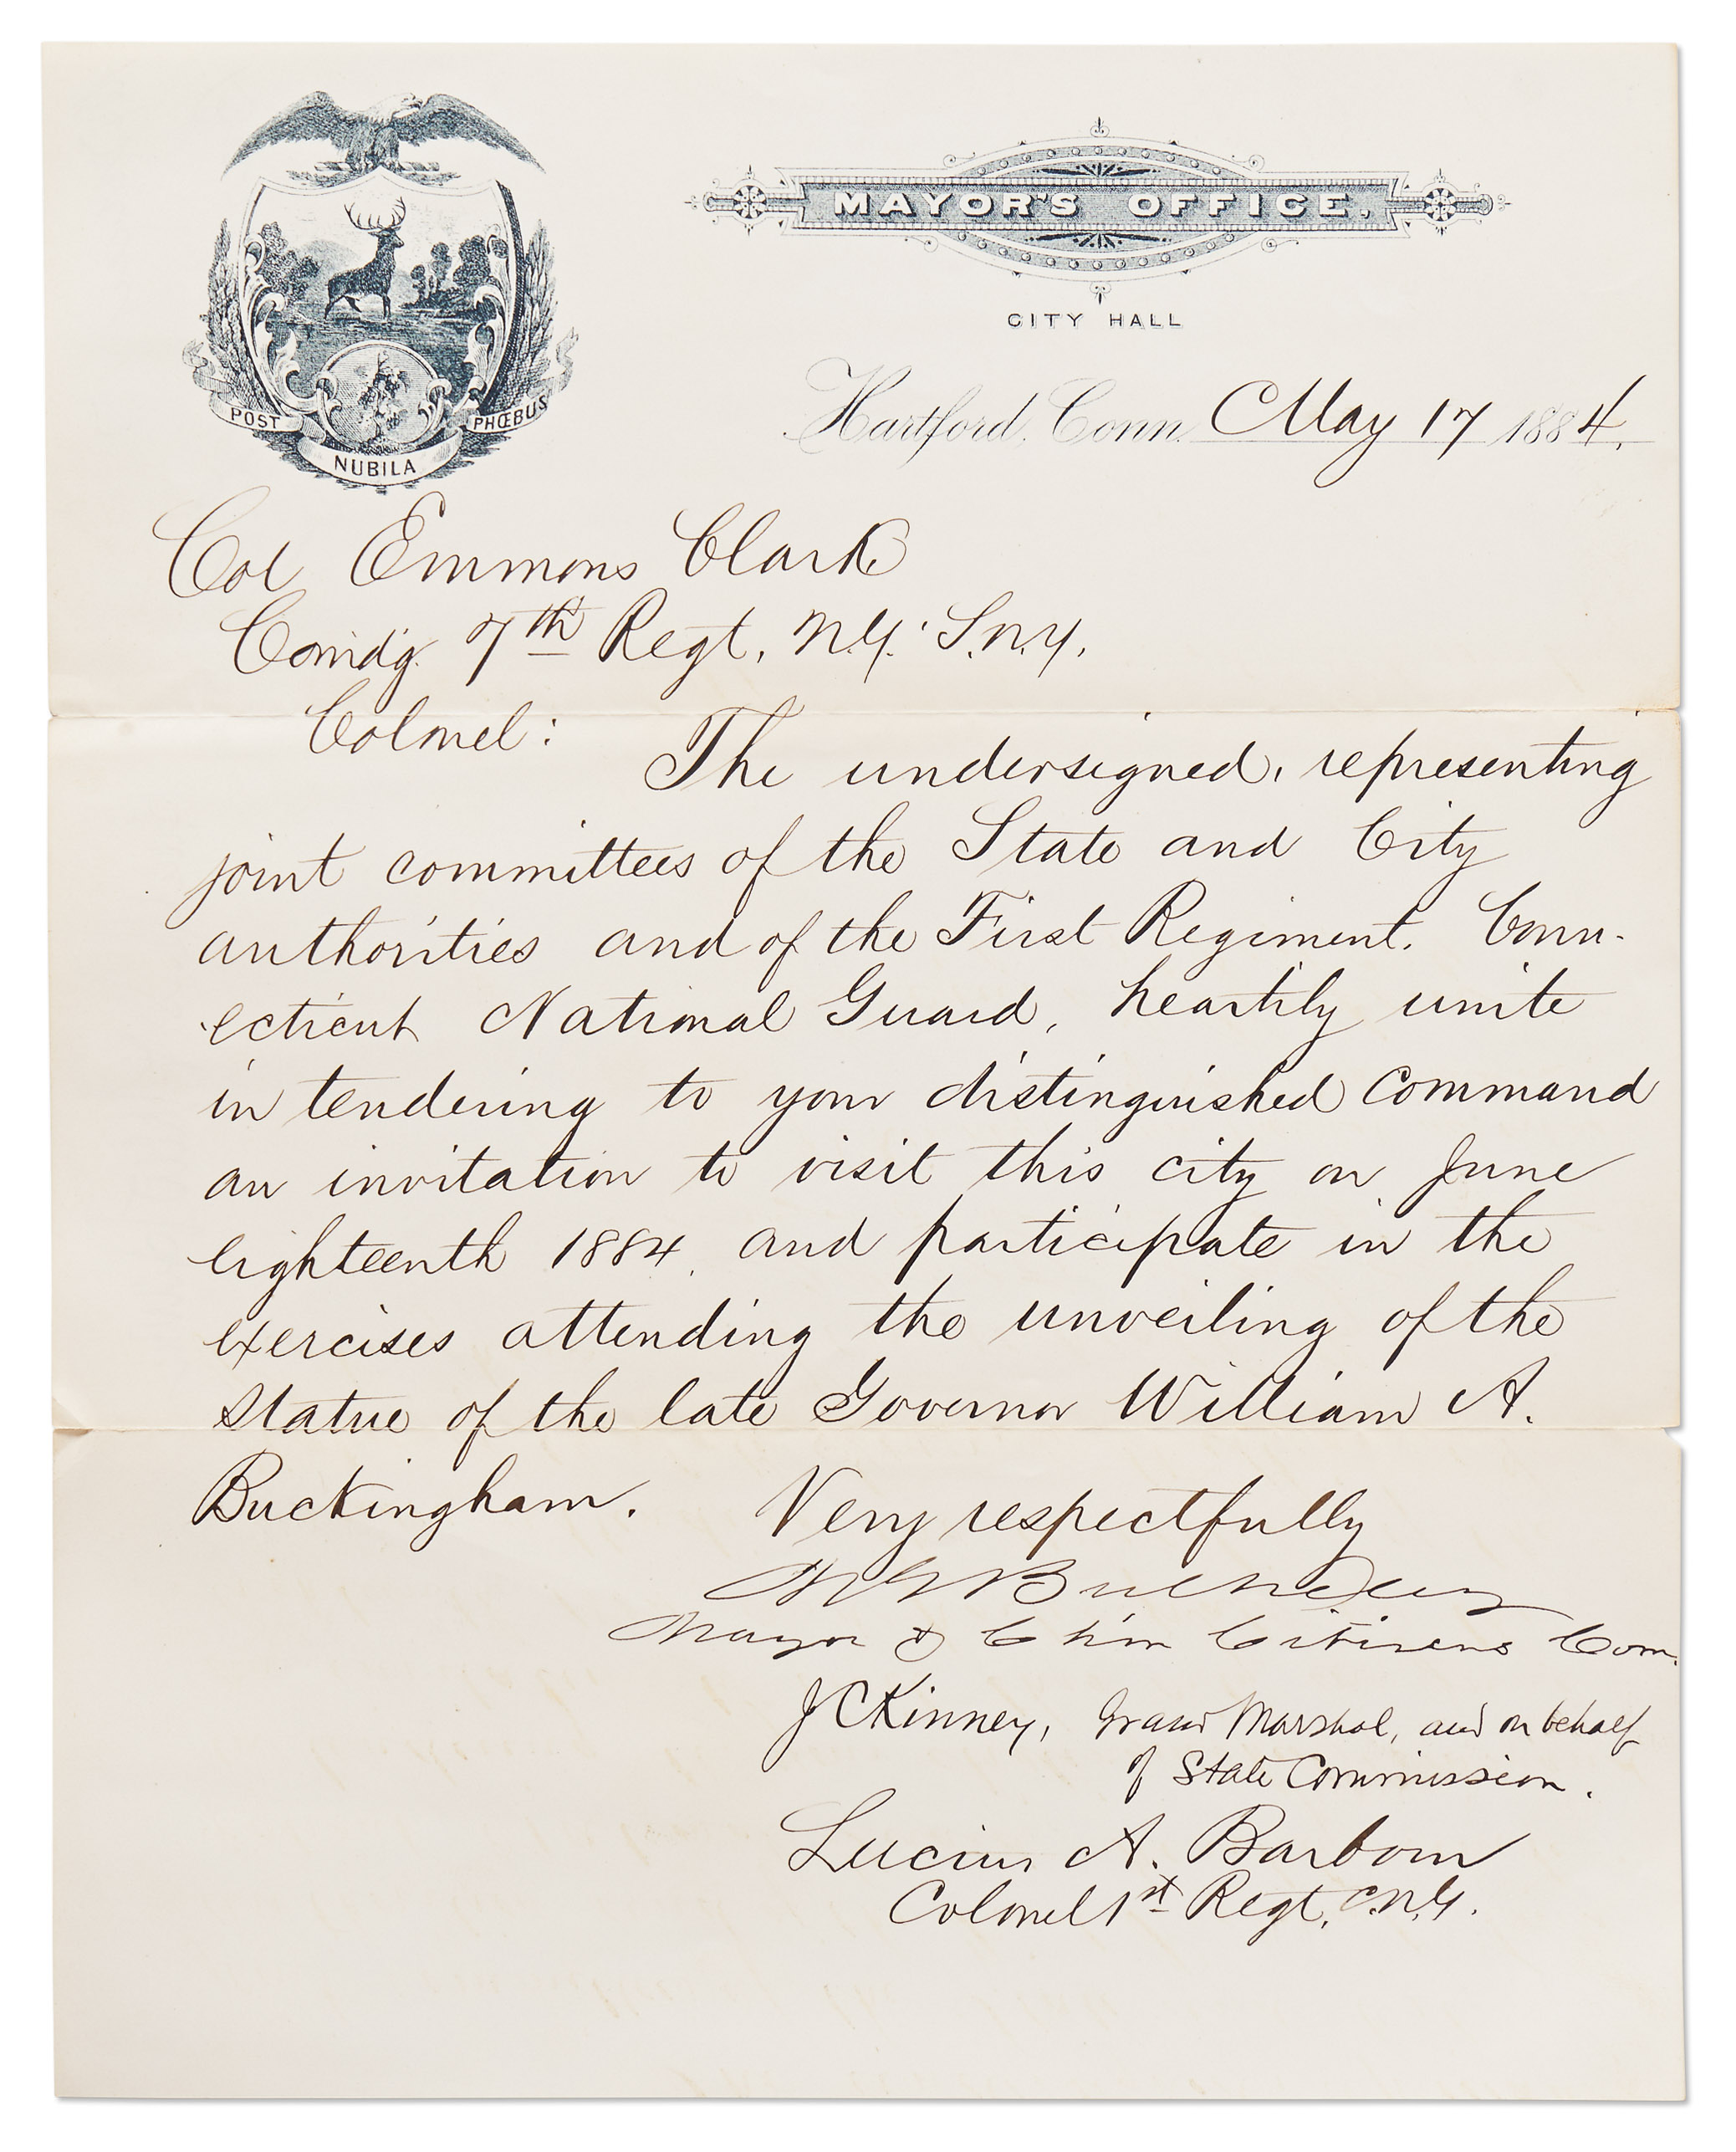 MAYOR'S OFFICE.
CITY HALL
POST NUBILA PHŒBUS
Hartford, Conn. May 17 1884.
Col Emmons Clark
Comdg. 7th Regt. N.Y. S.N.Y.
Colonel:
The undersigned, representing
joint committees of the State and City
authorities and of the First Regiment. Conn-
ecticut National Guard, heartily unite
in tendering to your distinguished command
an invitation to visit this city on June
eighteenth 1884, and participate in the
exercises attending the unveiling of the
statue of the late Governor William A.
Buckingham.
Very respectfully
Bulkeley
Mayor & Chm Citizens Com.
J C Kinney, Grand Marshal, and on behalf
of State Commission.
Lucius A. Barbour
Colonel 1st Regt. C.N.G.